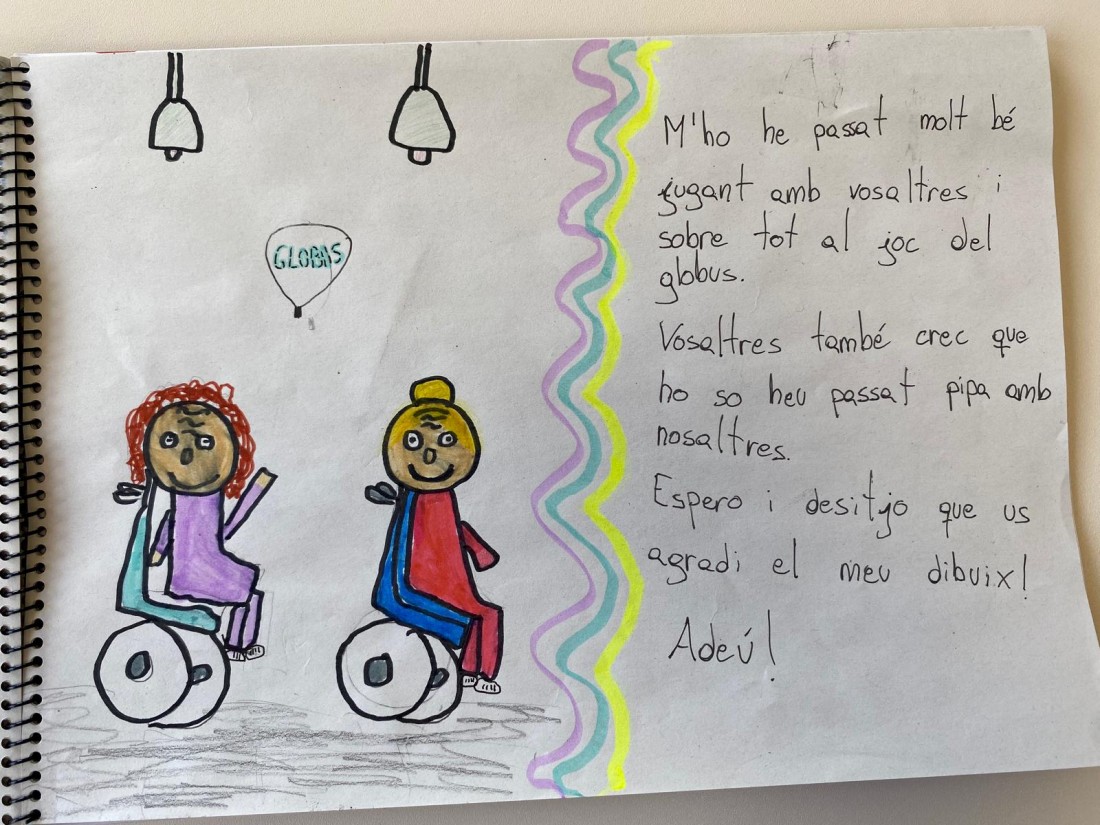 GLOBUS
M'ho he passat molt bé
jugant amb vosaltres i
sobre tot al joc del
globus.
Vosaltres també crec que
ho so heu passat pipa amb
nosaltres.
Espero i desitjo que us
agradi el meu dibuix!
Adeú!